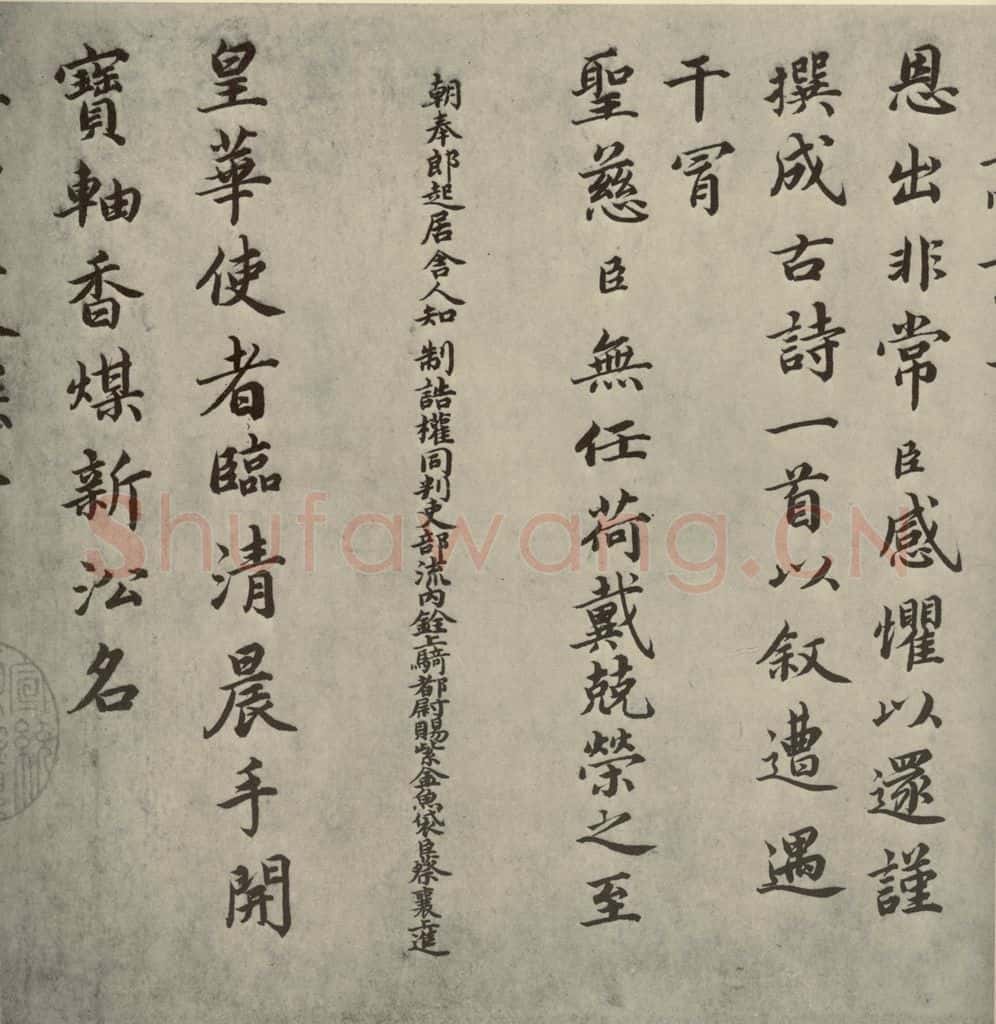 恩出非常臣感懼以還謹
撰成古詩一首以敘遭遇
干冒
聖慈臣無任荷戴兢榮之至
朝奉郎起居舍人知 制誥權同判吏部流內銓上騎都尉賜紫金魚袋臣蔡襄上進
皇華使者臨清晨手開
寶軸香煤新沄名
Shufawang.CN